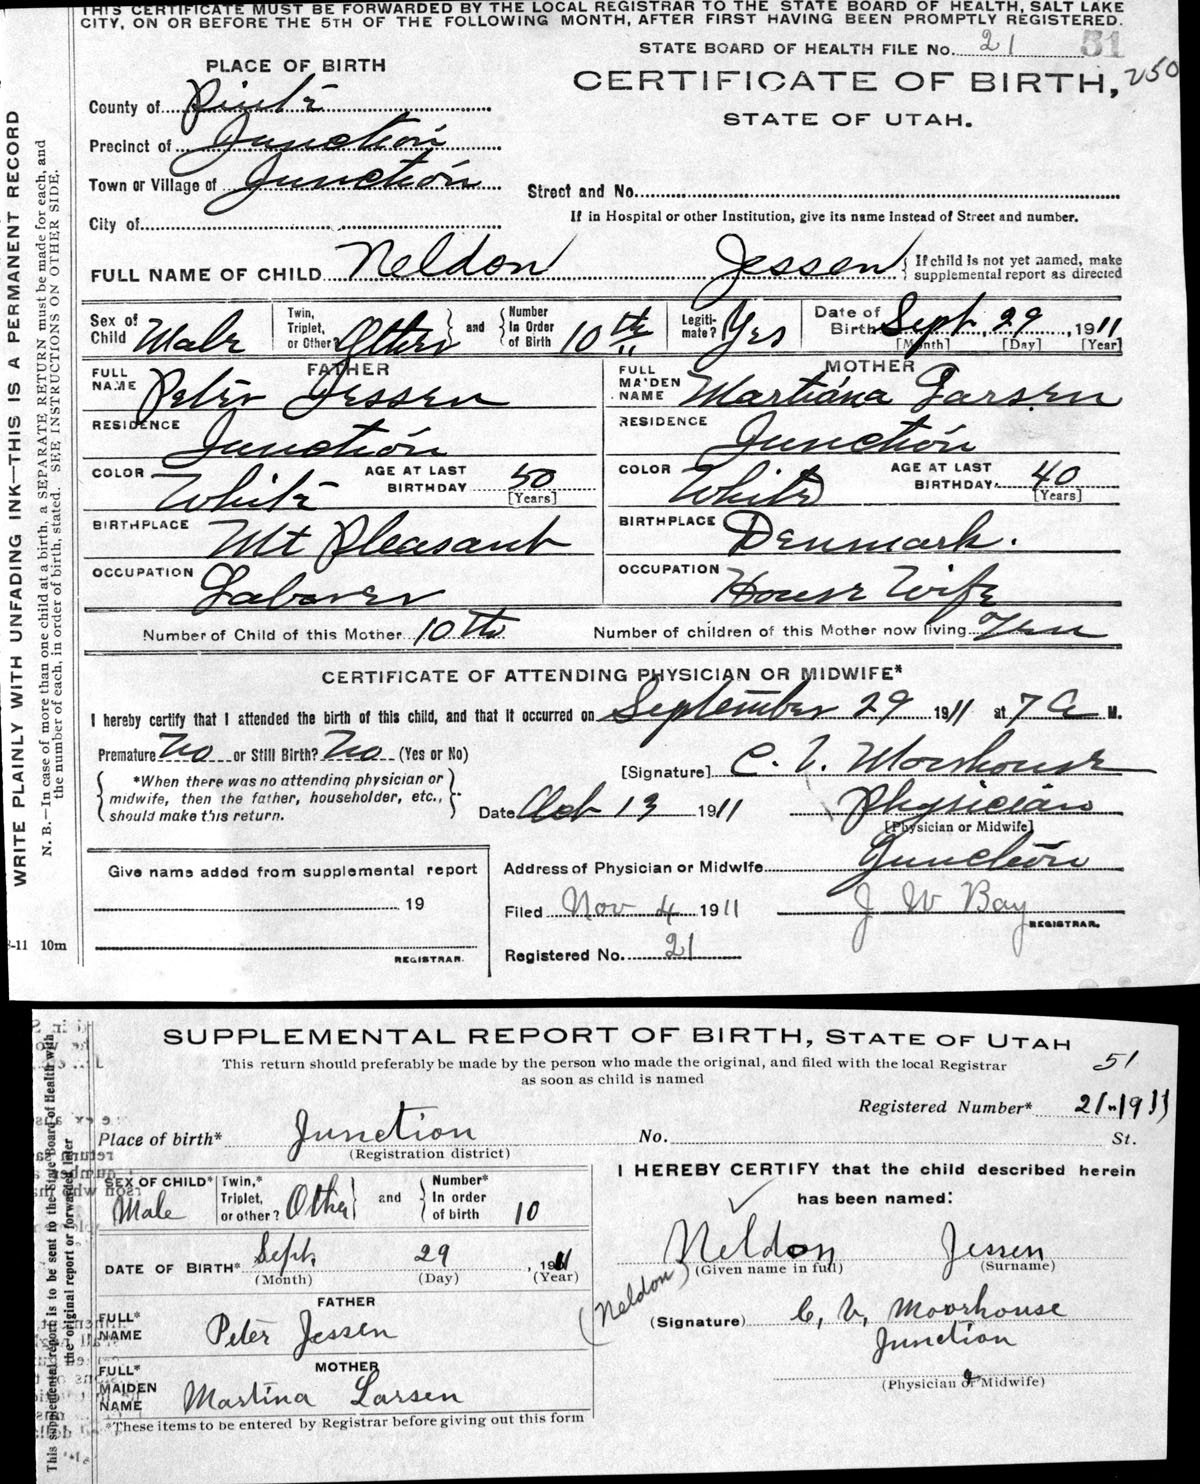 THIS CERTIFICATE MUST BE FORWARDED BY THE LOCAL REGISTRAR TO THE STATE BOARD OF HEALTH, SALT LAKE
CITY, ON OR BEFORE THE 5TH OF THE FOLLOWING MONTH, AFTER FIRST HAVING BEEN PROMPTLY REGISTERED.
STATE BOARD OF HEALTH FILE No. 21 51
PLACE OF BIRTH
CERTIFICATE OF BIRTH, 250
STATE OF UTAH.
County of Piute
Precinct of Junction
Town or Village of Junction
Street and No.
City of
If in Hospital or other Institution, give its name instead of Street and number.
FULL NAME OF CHILD Neldon Jessen { If child is not yet named, make supplemental report as directed
Sex of Child Male Twin, Triplet, or Other Other } and { Number In Order of Birth 10th Legiti-mate? Yes Date of Birth Sept. 29, 1911
[Month] [Day] [Year]
FATHER MOTHER
FULL NAME Peter Jessen FULL MAIDEN NAME Martiana Larsen
RESIDENCE Junction RESIDENCE Junction
COLOR White AGE AT LAST BIRTHDAY 50 [Years] COLOR White AGE AT LAST BIRTHDAY 40 [Years]
BIRTHPLACE Mt Pleasant BIRTHPLACE Denmark.
OCCUPATION Laborer OCCUPATION House Wife
Number of Child of this Mother 10th Number of children of this Mother now living Ten
CERTIFICATE OF ATTENDING PHYSICIAN OR MIDWIFE*
I hereby certify that I attended the birth of this child, and that it occurred on September 29 1911 at 7 A M.
Premature No or Still Birth? No (Yes or No)
[Signature] C. V. Moorhouse
{ *When there was no attending physician or midwife, then the father, householder, etc., should make this return. }
Date Oct 13 1911 Physician
[Physician or Midwife]
Give name added from supplemental report
Address of Physician or Midwife Junction
19
Filed Nov 4 1911 J W Bay
REGISTRAR.
REGISTRAR.
Registered No. 21
-11 10m
WRITE PLAINLY WITH UNFADING INK—THIS IS A PERMANENT RECORD
N. B.—In case of more than one child at a birth, a SEPARATE RETURN must be made for each, and
the number of each, in order of birth, stated. SEE INSTRUCTIONS ON OTHER SIDE.
SUPPLEMENTAL REPORT OF BIRTH, STATE OF UTAH
This return should preferably be made by the person who made the original, and filed with the local Registrar
as soon as child is named
51
Registered Number* 21-1911
Place of birth* Junction No. St.
(Registration district)
SEX OF CHILD* Male Twin,* Triplet, or other? Other } and { Number* In order of birth 10
DATE OF BIRTH* Sept. 29, 1911
(Month) (Day) (Year)
FATHER
FULL* NAME Peter Jessen
MOTHER
FULL* MAIDEN NAME Martina Larsen
*These items to be entered by Registrar before giving out this form
I HEREBY CERTIFY that the child described herein
has been named:
Neldon Jessen
(Given name in full) (Surname)
(Neldon)
(Signature) C. V. Moorhouse
Junction
(Physician or Midwife)
This supplemental report is to be sent to the State Board of Health with
the original report or forwarded later